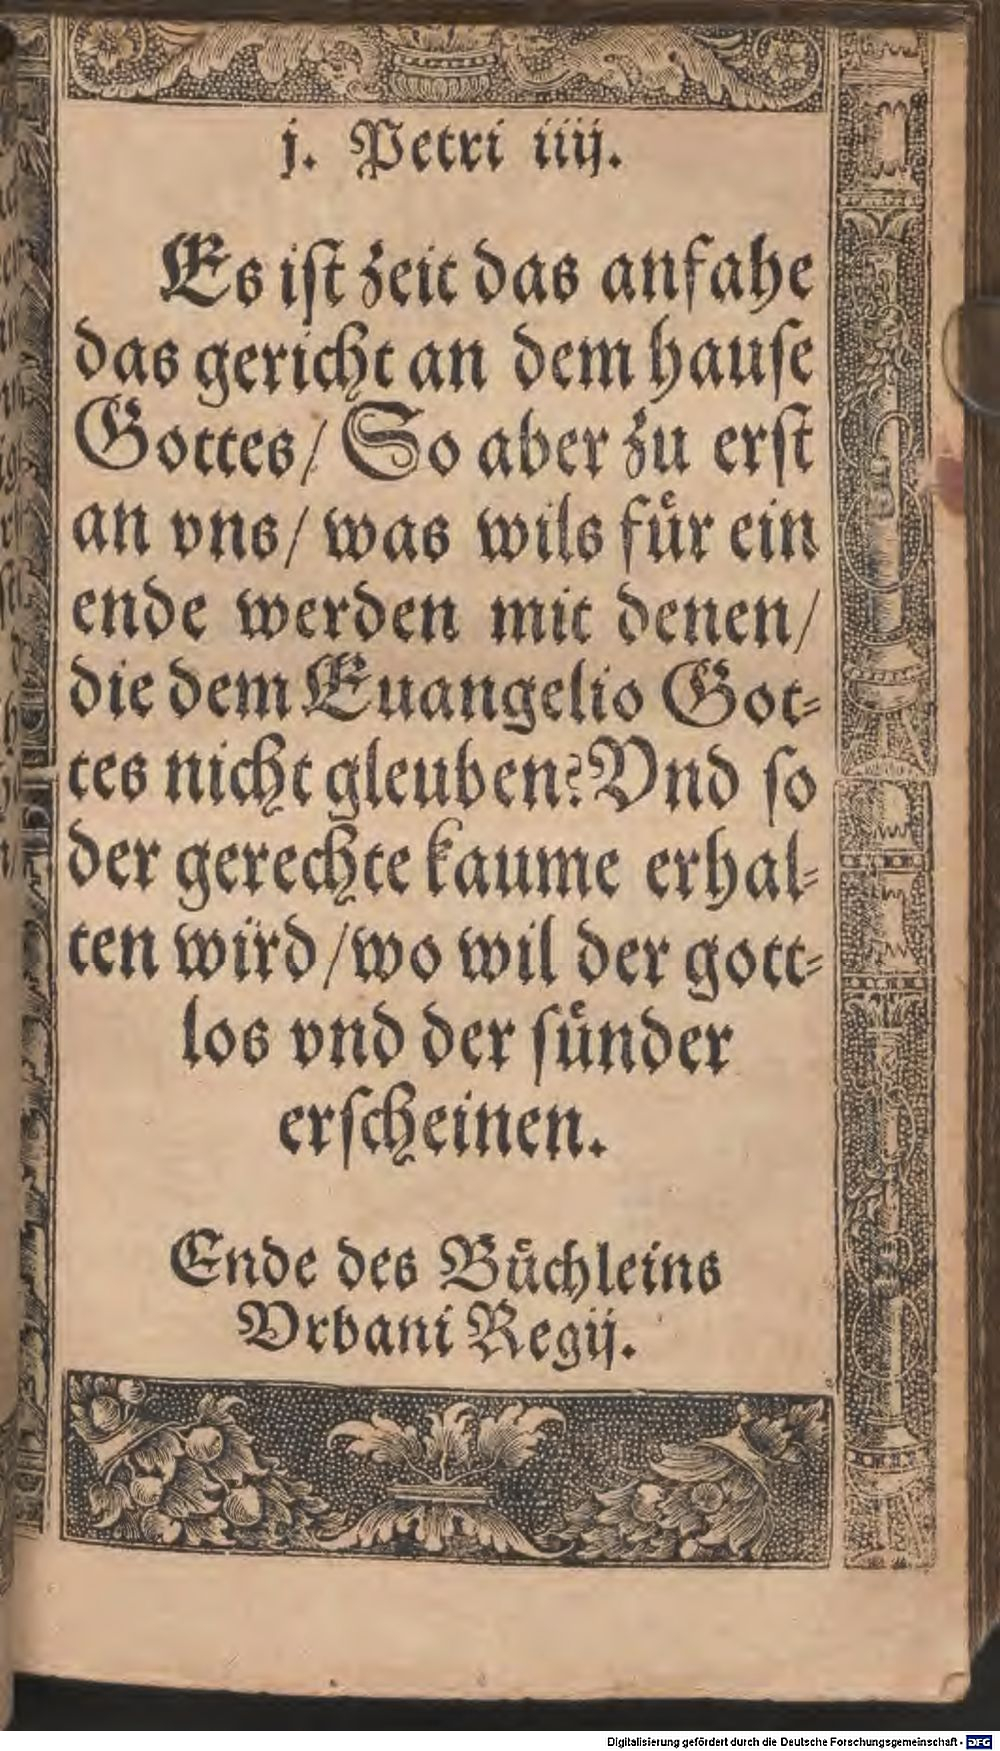 j. Petri iiij.
Es iſt zeit das anfahe
das gericht an dem hauſe
Gottes/ So aber zu erſt
an vns/ was wils fuͤr ein
ende werden mit denen/
die dem Euangelio Got⸗
tes nicht gleuben? Vnd ſo
der gerechte kaume erhal⸗
ten wird/ wo wil der gott⸗
los vnd der ſuͤnder
erſcheinen.
Ende des Buͤchleins
Vrbani Regij.
Digitalisierung gefördert durch die Deutsche Forschungsgemeinschaft - DFG